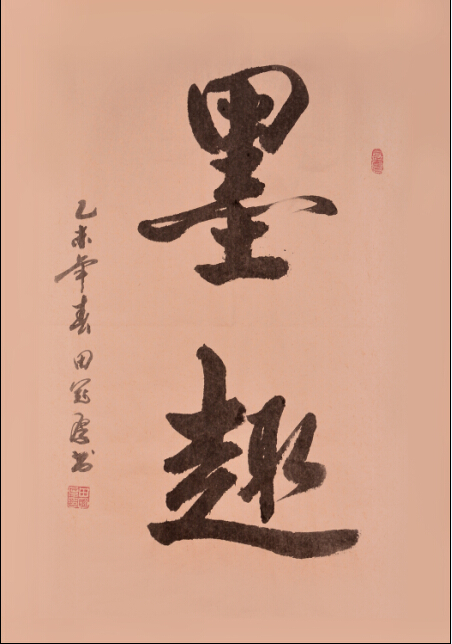 墨趣
乙未年春田冠书